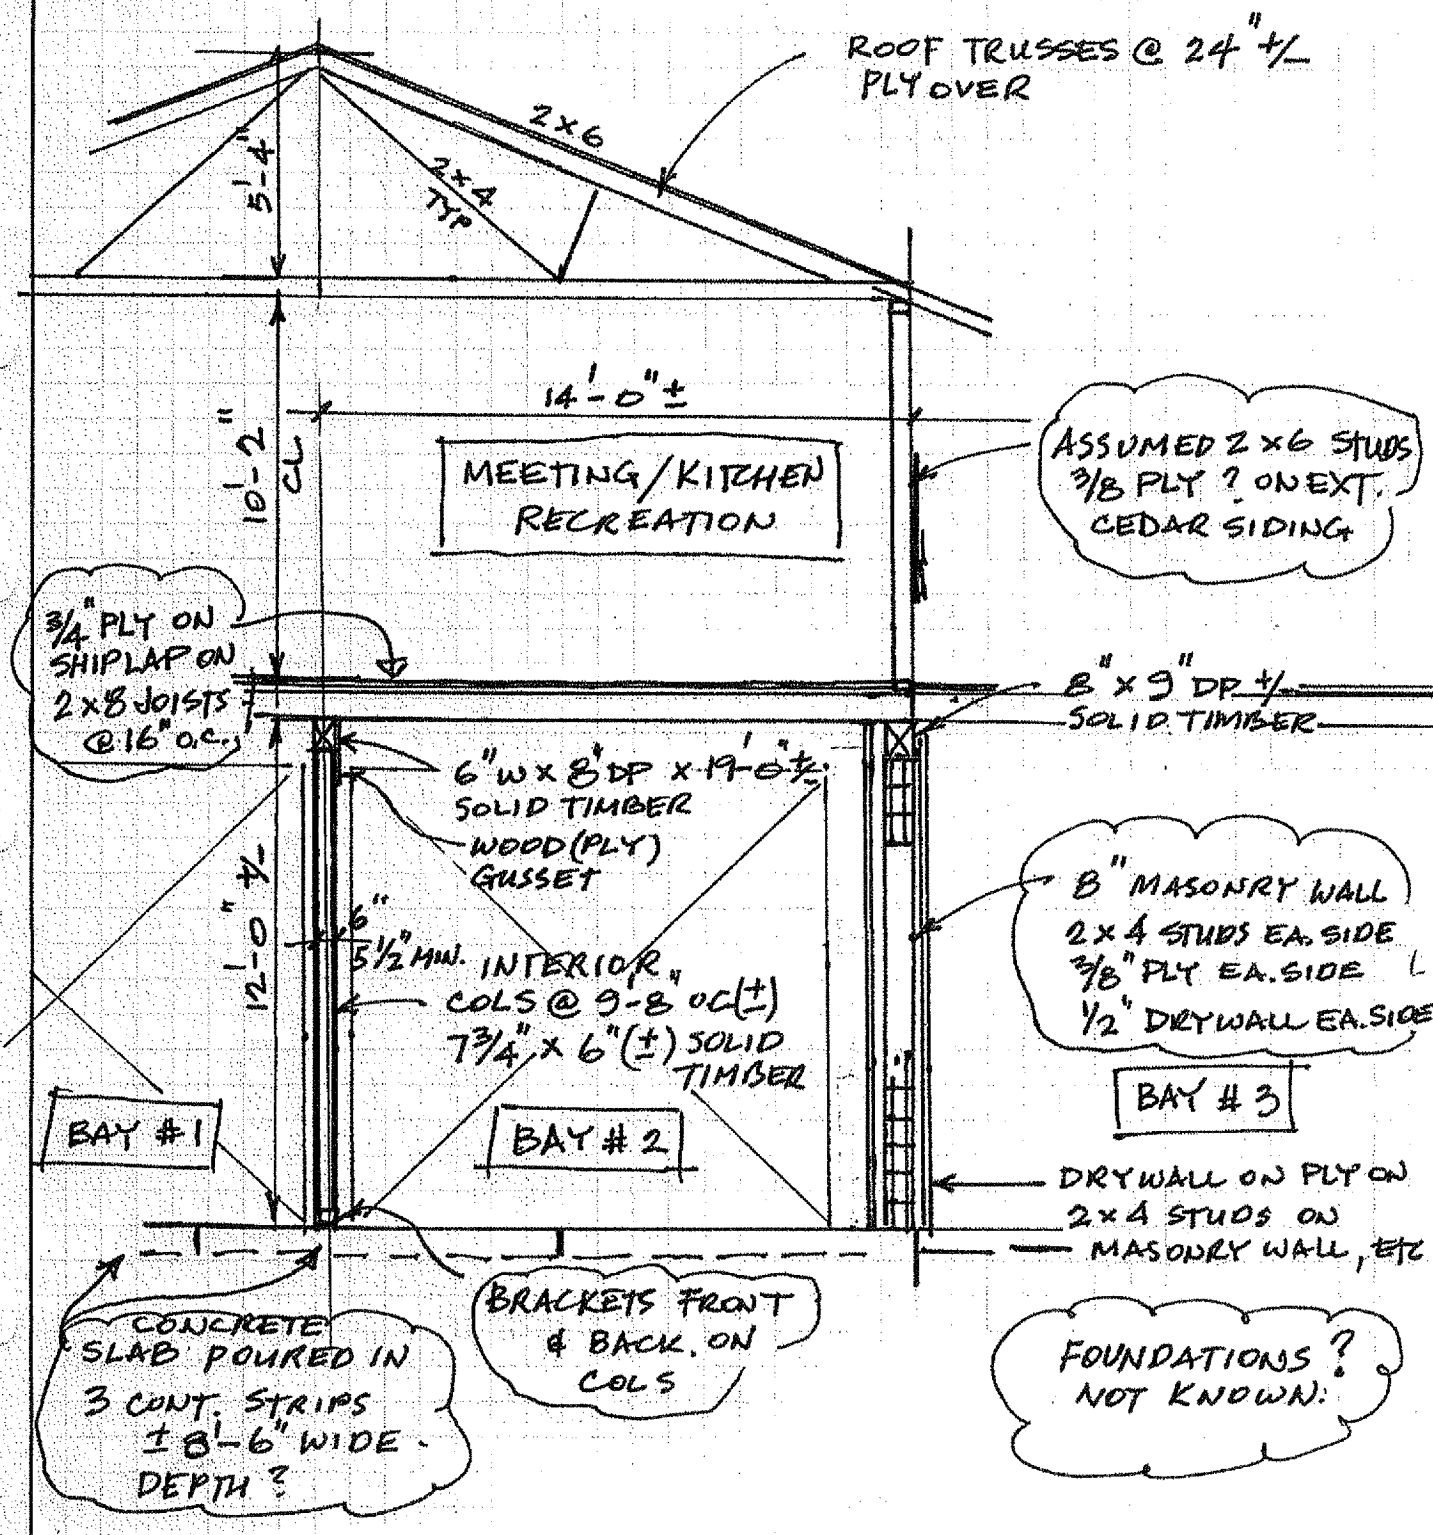 ROOF TRUSSES @ 24" +/-
PLY OVER
2 x 6
5'-4"
2 x 4
TYP
14'-0" ±
10'-2"
CL
MEETING/KITCHEN
RECREATION
ASSUMED 2 x 6 STUDS
3/8 PLY ? ON EXT.
CEDAR SIDING
3/4" PLY ON
SHIPLAP ON
2 x 8 JOISTS
@ 16" o.c.
8" x 9" DP +/-
SOLID TIMBER
6" W x 8" DP x 19'-0" ±
SOLID TIMBER
WOOD (PLY)
GUSSET
12'-0" +/-
6"
5 1/2" MIN.
INTERIOR
COLS @ 9'-8" OC (±)
7 3/4" x 6" (±) SOLID
TIMBER
8" MASONRY WALL
2 x 4 STUDS EA. SIDE
3/8" PLY EA. SIDE
1/2" DRYWALL EA. SIDE
BAY # 1
BAY # 2
BAY # 3
DRYWALL ON PLY ON
2 x 4 STUDS ON
MASONRY WALL, ETC
CONCRETE
SLAB POURED IN
3 CONT. STRIPS
± 8'-6" WIDE.
DEPTH ?
BRACKETS FRONT
& BACK. ON
COLS
FOUNDATIONS ?
NOT KNOWN.